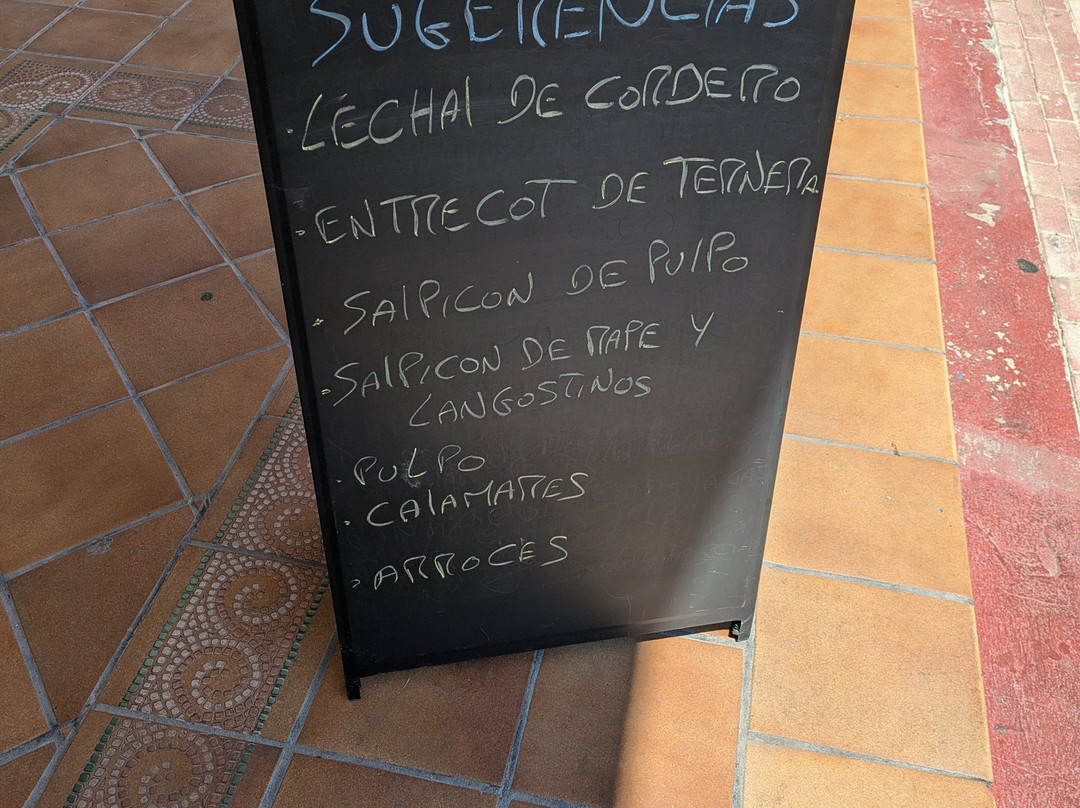 SUGERENCIAS
· LECHAL DE CORDERO
· ENTRECOT DE TERNERA
· SALPICON DE PULPO
· SALPICON DE RAPE Y
LANGOSTINOS
· PULPO
· CALAMARES
· ARROCES